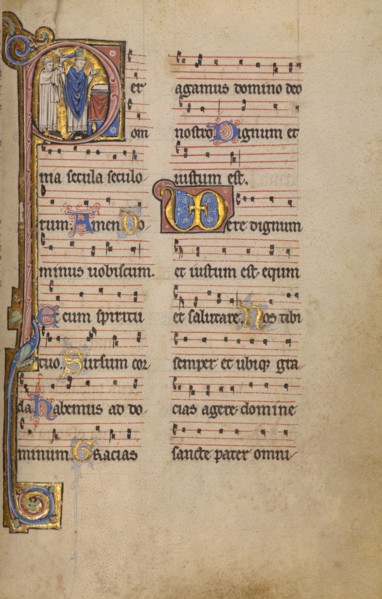 Per
om
nia secula seculo
rum. Amen. Do
minus uobiscum.
Et cum spiritu
tuo. Sursum cor
da. habemus ad do
minum. Gracias
agamus domino deo
nostro. Dignum et
iustum est.
Vere dignum
et iustum est equum
et salutare. Nos tibi
semper et ubiq; gra
cias agere domine
sancte pater omni